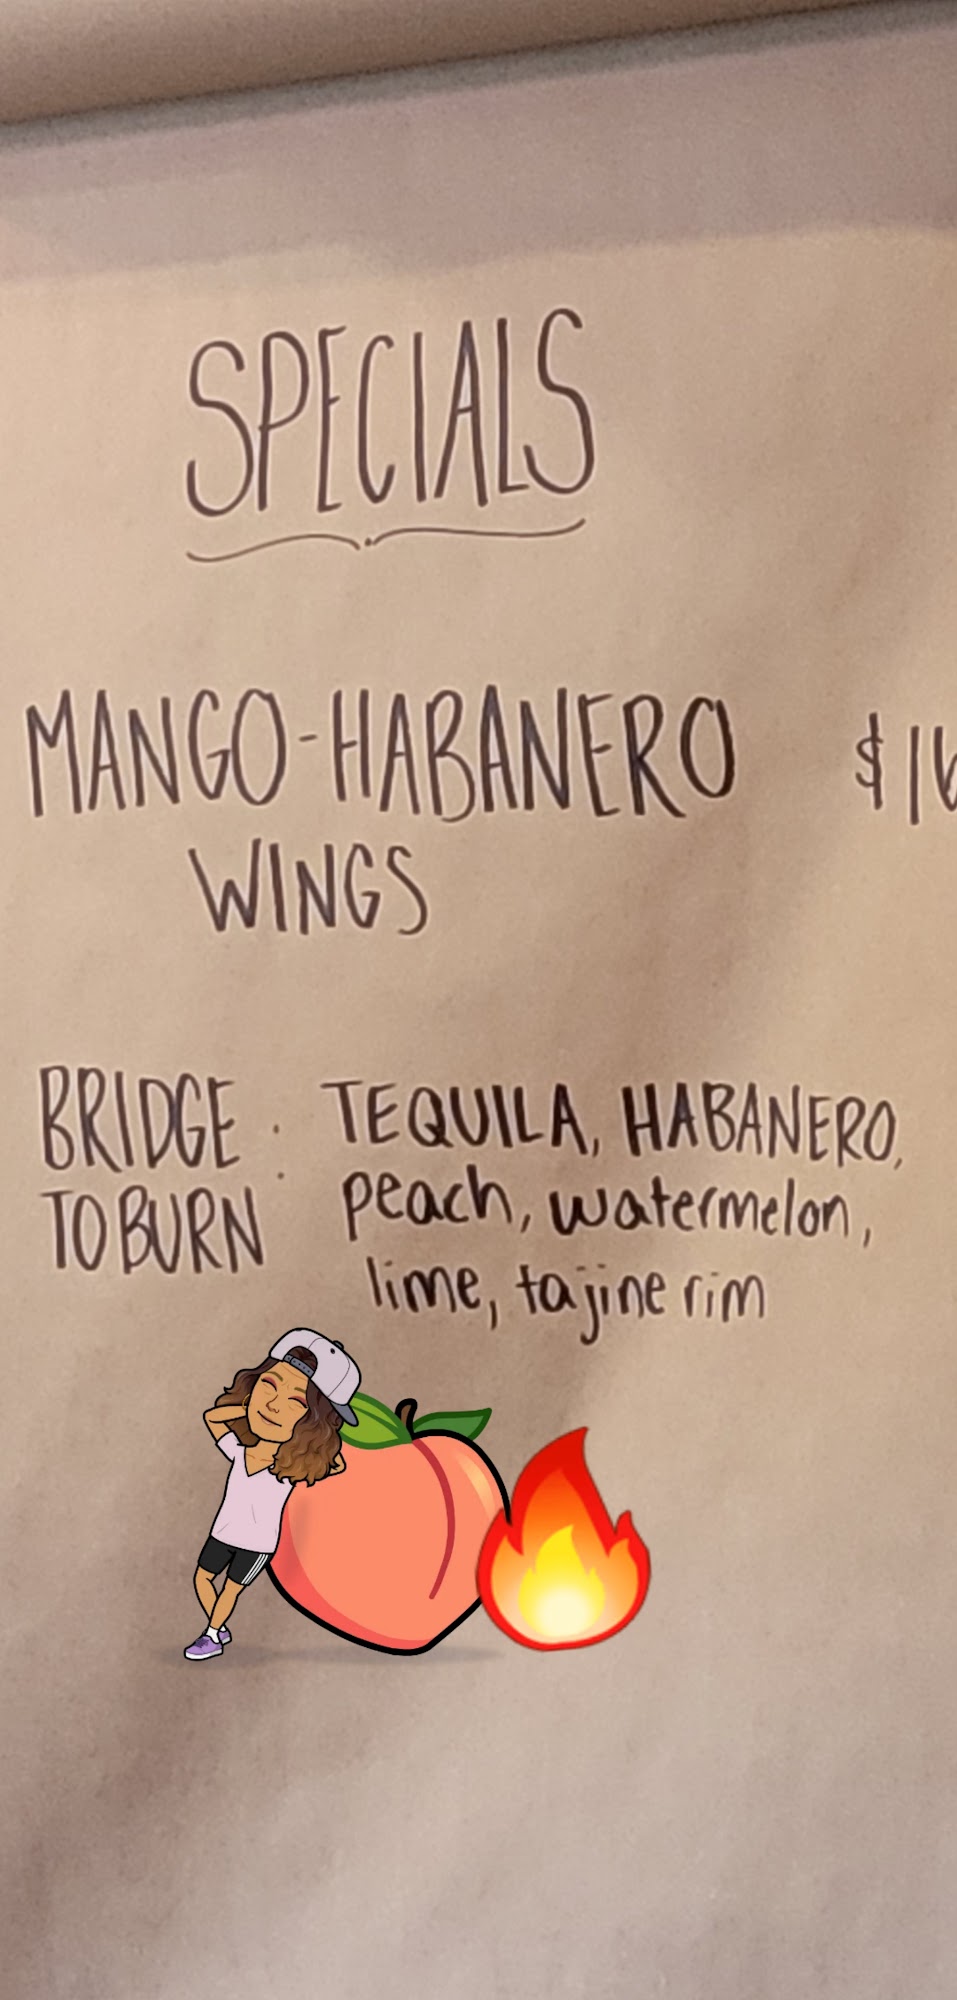 SPECIALS
MANGO-HABANERO
WINGS
BRIDGE : TEQUILA, HABANERO,
TO BURN peach, watermelon,
lime, tajine rim